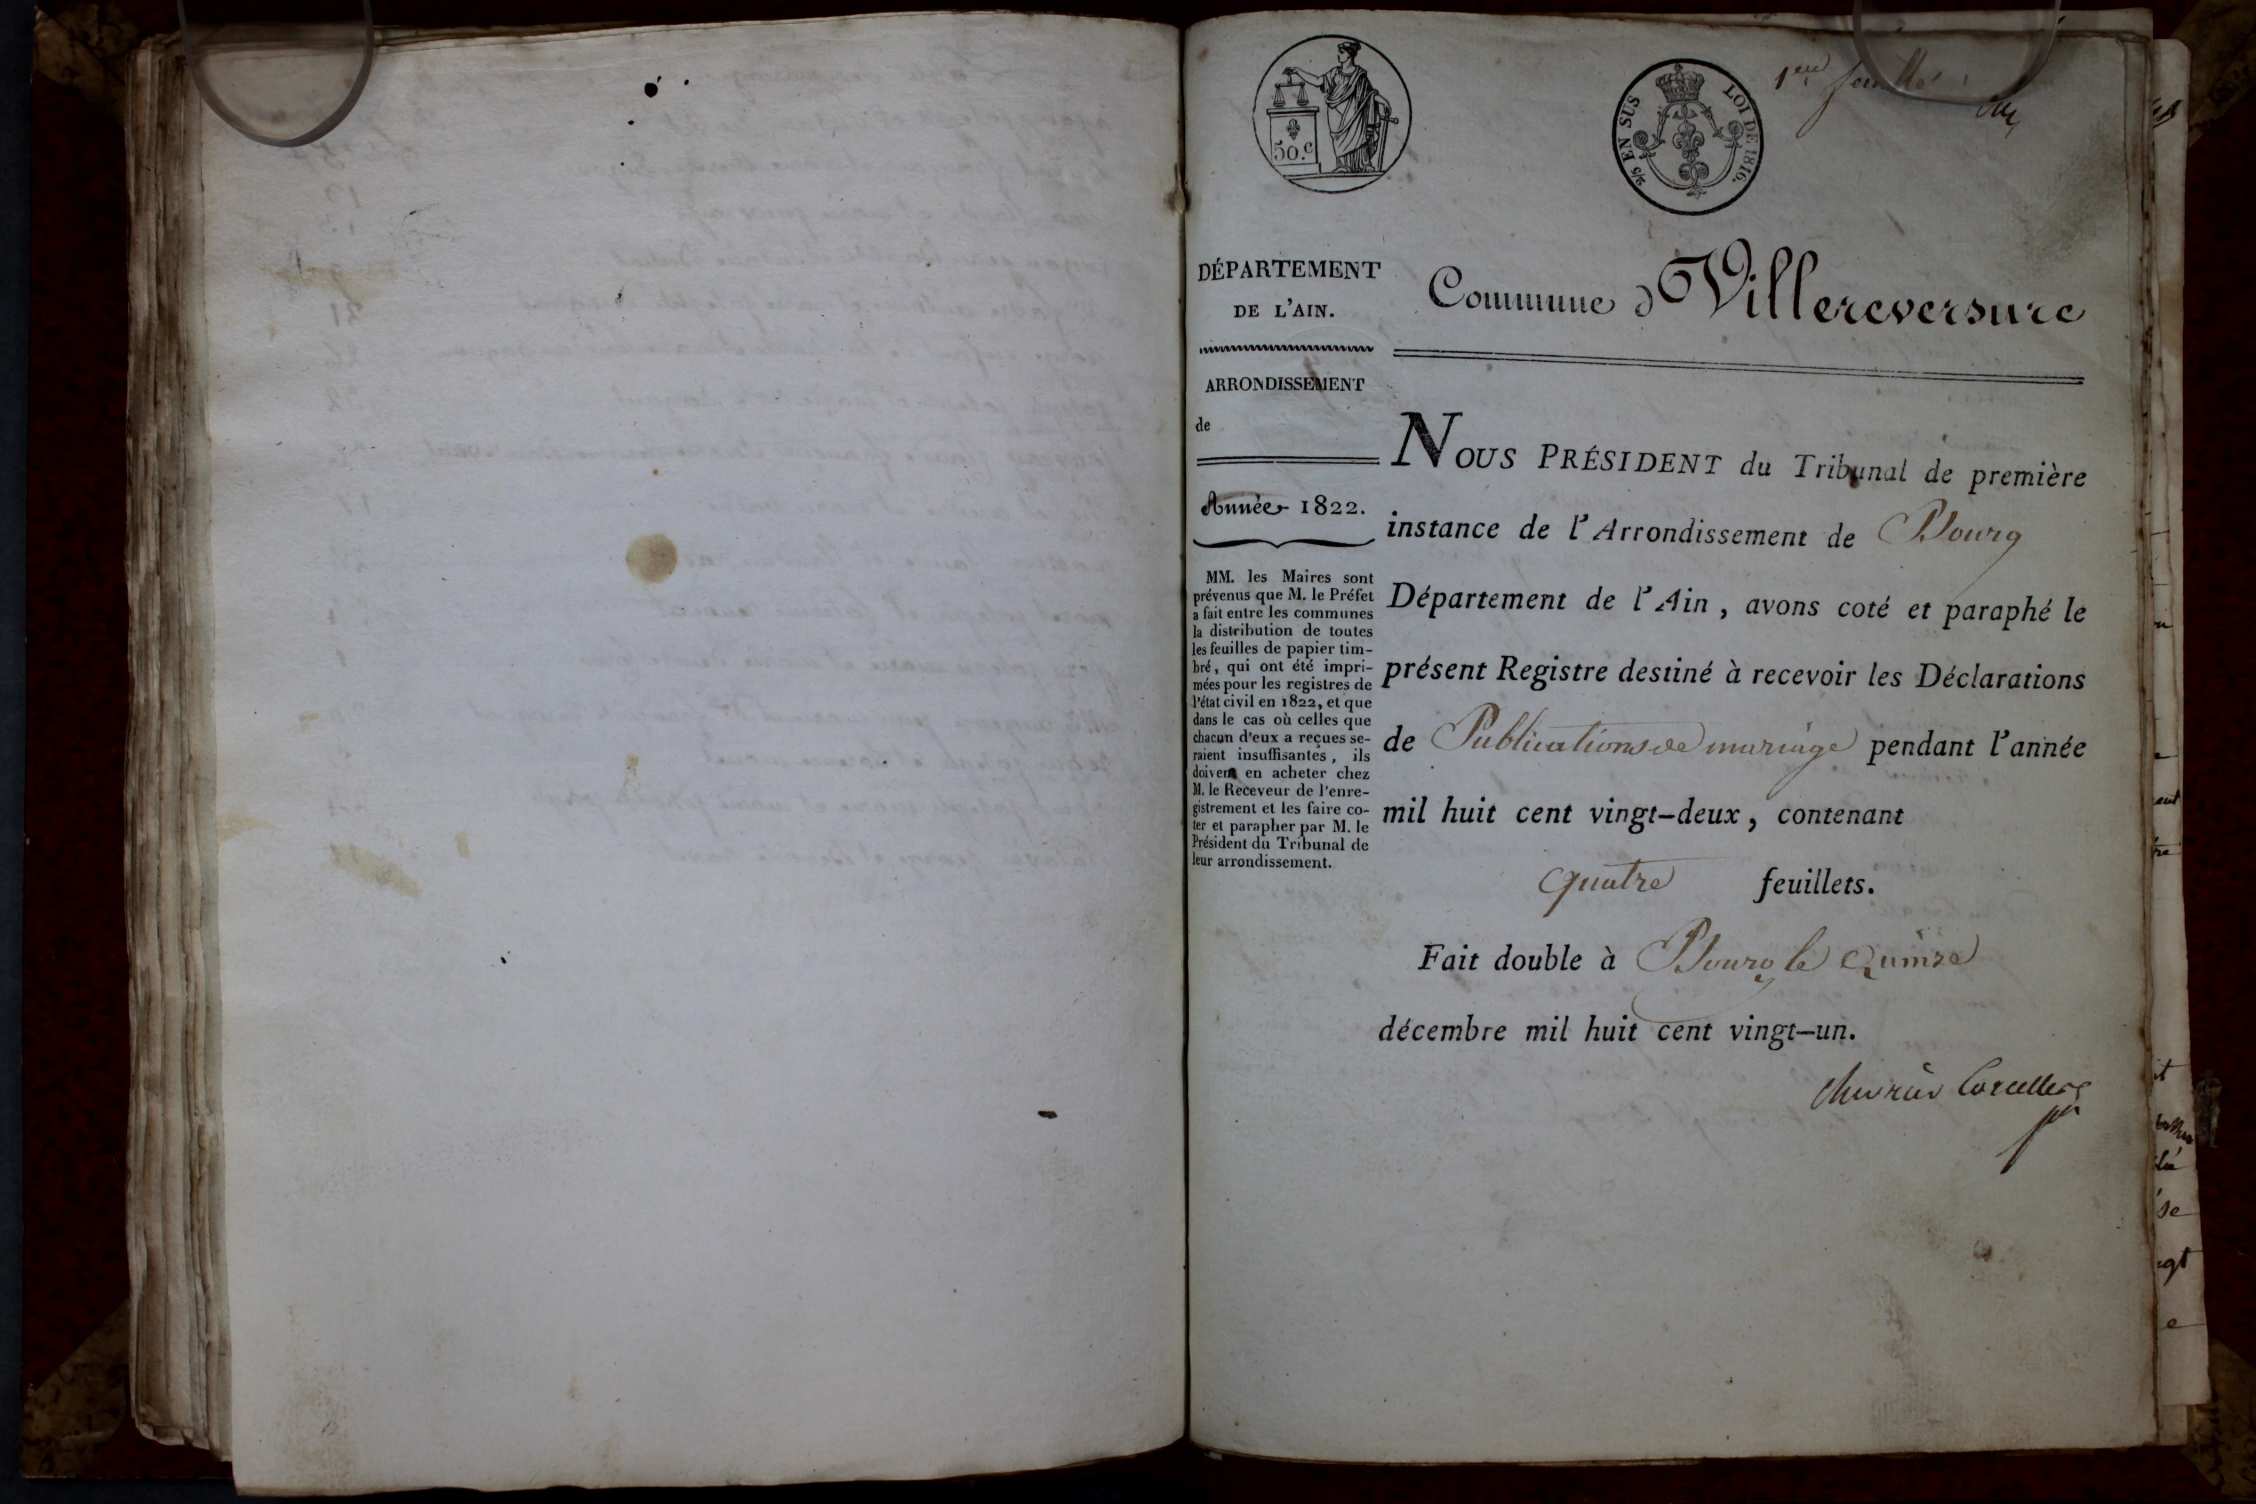 50.c
2/5 EN SUS LOI DE 1816.
1er feuillet
DÉPARTEMENT
DE L'AIN.
ARRONDISSEMENT
de
Année 1822.
MM. les Maires sont
prévenus que M. le Préfet
a fait entre les communes
la distribution de toutes
les feuilles de papier tim-
bré, qui ont été impri-
mées pour les registres de
l'état civil en 1822, et que
dans le cas où celles que
chacun d'eux a reçues se-
raient insuffisantes, ils
doivent en acheter chez
M. le Receveur de l'enre-
gistrement et les faire co-
ter et parapher par M. le
Président du Tribunal de
leur arrondissement.
Commune d Villereversure
NOUS PRÉSIDENT du Tribunal de première
instance de l'Arrondissement de Bourg
Département de l'Ain, avons coté et paraphé le
présent Registre destiné à recevoir les Déclarations
de Publications de mariage pendant l'année
mil huit cent vingt-deux, contenant
quatre feuillets.
Fait double à Bourg le quinze
décembre mil huit cent vingt-un.